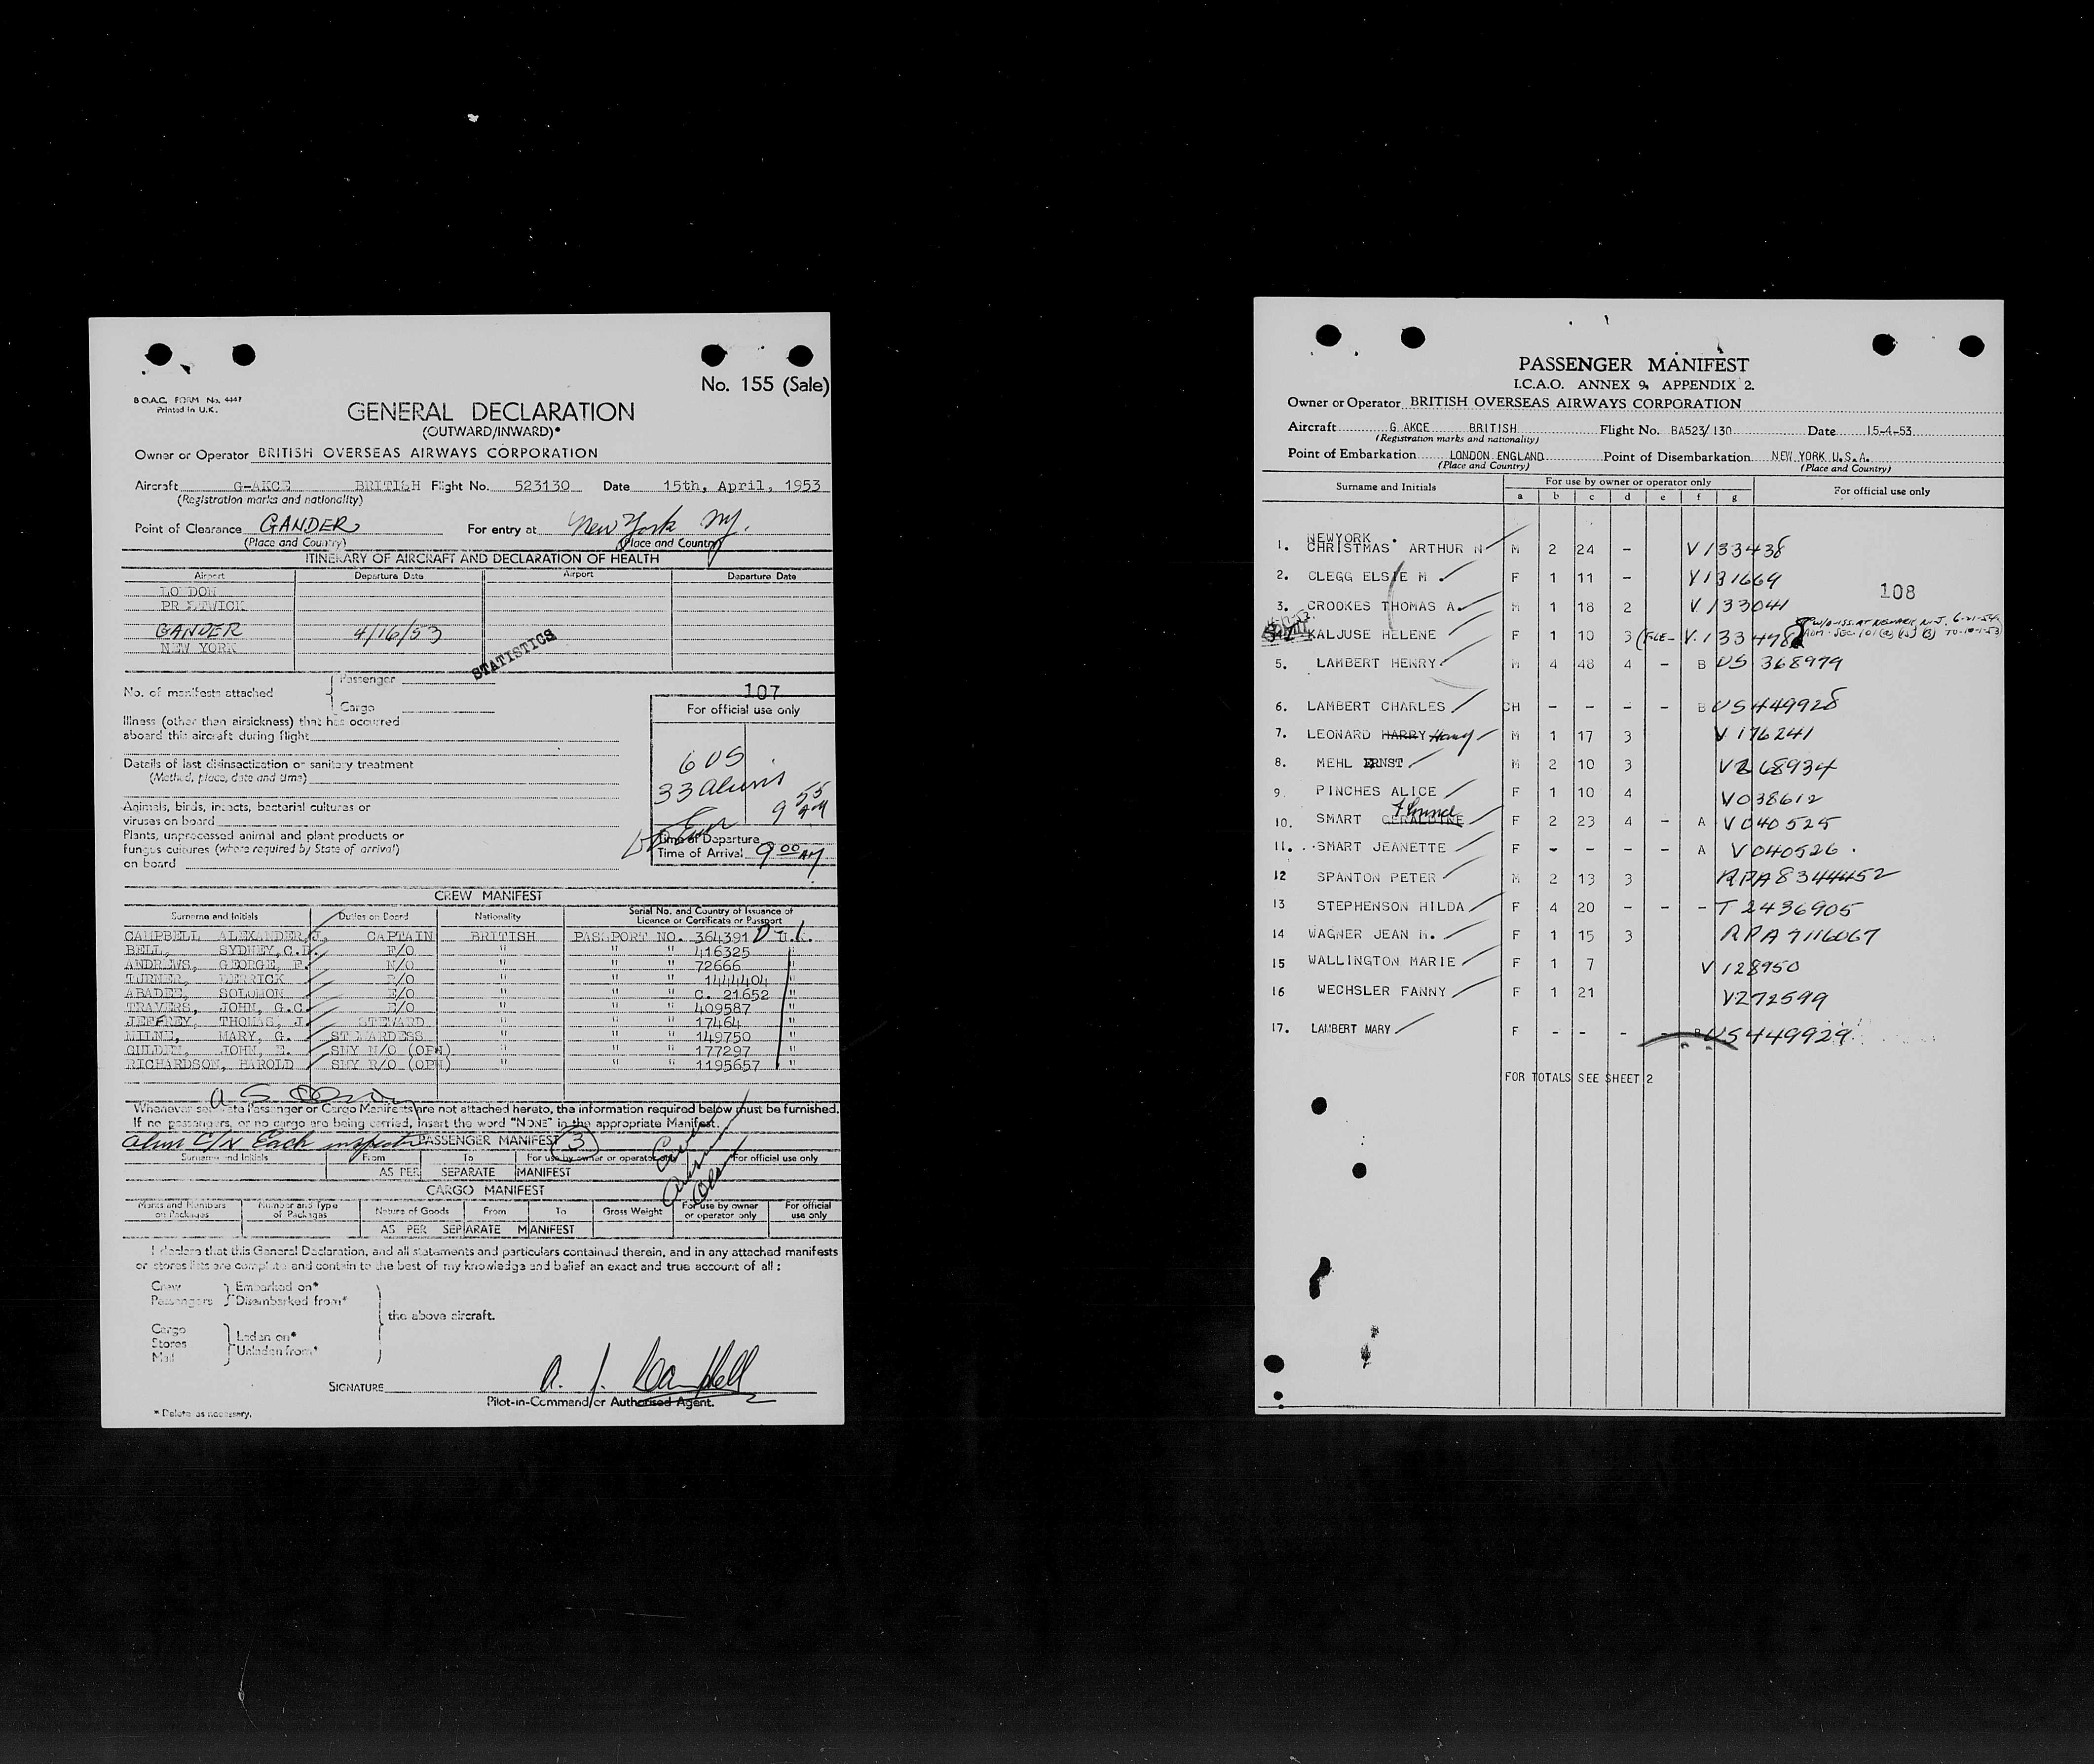 No. 155 (Sale)
B.O.A.C. FORM No. 4447
Printed in U.K.
GENERAL DECLARATION
(OUTWARD/INWARD)*
Owner or Operator BRITISH OVERSEAS AIRWAYS CORPORATION
Aircraft G-AKCE BRITISH Flight No. 523130 Date 15th, April, 1953
(Registration marks and nationality)
Point of Clearance GANDER For entry at New York NY.
(Place and Country) (Place and Country)
ITINERARY OF AIRCRAFT AND DECLARATION OF HEALTH
Airport Departure Date Airport Departure Date
LONDON
PRESTWICK
GANDER 4/16/53
NEW YORK
STATISTICS
No. of manifests attached { Passenger
Cargo
107
For official use only
Illness (other than airsickness) that has occurred
aboard this aircraft during flight
Details of last disinsectization or sanitary treatment
(Method, place, date and time)
Animals, birds, insects, bacterial cultures or
viruses on board
Plants, unprocessed animal and plant products or
fungus cultures (where required by State of arrival)
on board
6 US
33 aliens
9 55 AM
Time of Departure
Time of Arrival 9 00 AM
CREW MANIFEST
Surname and Initials Duties on Board Nationality Serial No. and Country of Issuance of
Licence or Certificate or Passport
CAMPBELL ALEXANDER, J. CAPTAIN BRITISH PASSPORT NO. 364391 U.K.
BELL, SYDNEY, C.D. F/O " " " 416325 "
ANDREWS, GEORGE, F. N/O " " " 72666 "
TURNER, DERRICK R/O " " " 1444404 "
ABADEE, SOLOMON E/O " " " C. 21652 "
TRAVERS, JOHN, G.C. E/O " " " 409587 "
JEFFREY, THOMAS, J. STEWARD " " " 17464 "
MILNE, MARY, G. STEWARDESS " " " 149750 "
GULDEN, JOHN, E. SNY N/O (OPN) " " " 177297 "
RICHARDSON, HAROLD SNY R/O (OPN) " " " 1195657 "
Whenever separate Passenger or Cargo Manifests are not attached hereto, the information required below must be furnished.
If no passengers, or no cargo are being carried, insert the word "NONE" in the appropriate Manifest.
Each PASSENGER MANIFEST 3
Surname and Initials From To For use by owner or operator only For official use only
AS PER SEPARATE MANIFEST
CARGO MANIFEST
Marks and Numbers on Packages Number and Type of Packages Nature of Goods From To Gross Weight For use by owner or operator only For official use only
AS PER SEPARATE MANIFEST
I declare that this General Declaration, and all statements and particulars contained therein, and in any attached manifests
or stores lists are complete and contain to the best of my knowledge and belief an exact and true account of all :
Crew } Embarked on*
Passengers } Disembarked from*
the above aircraft.
Cargo
Stores } Laden on*
Mail } Unladen from*
SIGNATURE A. J. Campbell
Pilot-in-Command/or Authorised Agent.
* Delete as necessary.
PASSENGER MANIFEST
I.C.A.O. ANNEX 9, APPENDIX 2.
Owner or Operator BRITISH OVERSEAS AIRWAYS CORPORATION
Aircraft G AKCE BRITISH Flight No. BA523/130 Date 15-4-53
(Registration marks and nationality)
Point of Embarkation LONDON ENGLAND Point of Disembarkation NEW YORK U.S.A.
(Place and Country) (Place and Country)
Surname and Initials For use by owner or operator only For official use only
a b c d e f g
NEWYORK
1. CHRISTMAS ARTHUR N M 2 24 - V133438
2. CLEGG ELSIE M F 1 11 - V131669
108
3. CROOKES THOMAS A. M 1 18 2 V133041
KALJUSE HELENE F 1 10 3 V.133478
W/O ISS. AT NEWARK N.J. 6-21-54
5. LAMBERT HENRY M 4 48 4 - B US 368979
6. LAMBERT CHARLES CH - - - - B US449928
7. LEONARD HARRY Harry M 1 17 3 V176241
8. MEHL ERNST M 2 10 3 V268934
9. PINCHES ALICE F 1 10 4 V038612
10. SMART GERALDINE F 2 23 4 - A V040525
11. SMART JEANETTE F - - - - A V040526
12 SPANTON PETER M 2 13 3 RPA8344452
13 STEPHENSON HILDA F 4 20 - - - T 2436905
14 WAGNER JEAN M. F 1 15 3 RPA 7116067
15 WALLINGTON MARIE F 1 7 V128950
16 WECHSLER FANNY F 1 21 V272599
17. LAMBERT MARY F - - - - B US449929
FOR TOTALS SEE SHEET 2